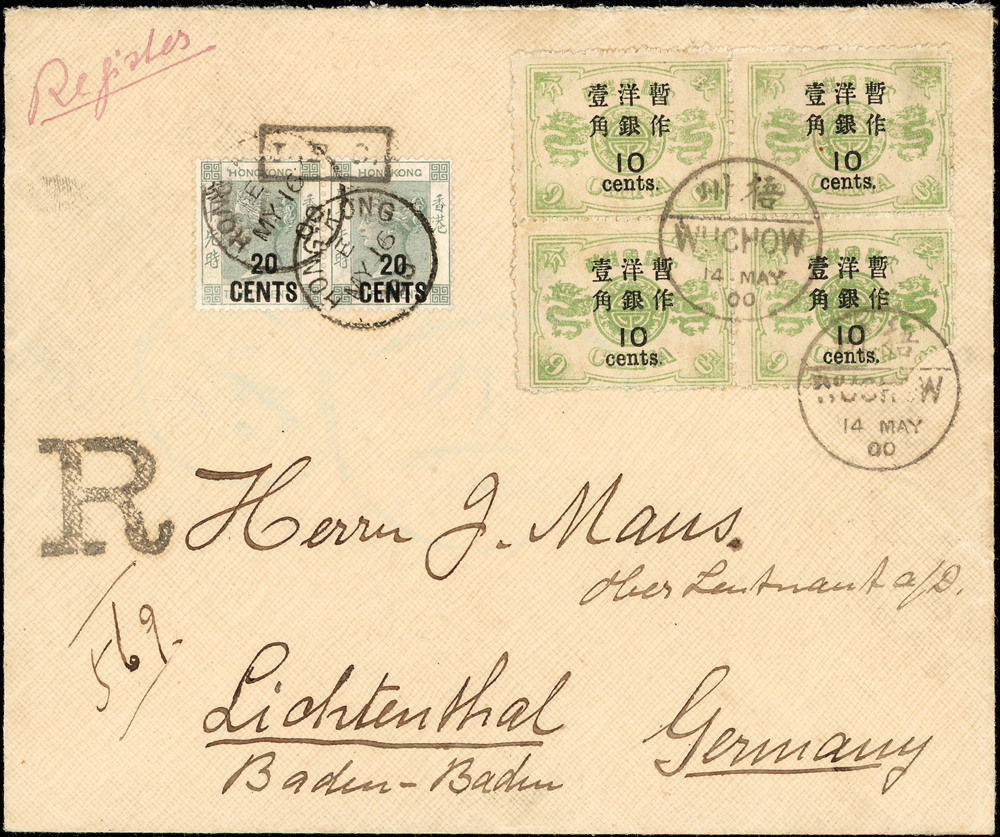 Register
I.P.O.
HONGKONG HONGKONG
香港
20 CENTS
20 CENTS
HONG KONG
E
MY 16
00
HONG KONG
E
MY 16
00
暫作
洋銀
壹角
10
cents.
暫作
洋銀
壹角
10
cents.
暫作
洋銀
壹角
10
cents.
暫作
洋銀
壹角
10
cents.
CHINA
梧州
WUCHOW
14 MAY
00
梧州
WUCHOW
14 MAY
00
R
569
Herrn J. Maus.
Ober Leutnant a/D.
Lichtenthal
Baden-Baden
Germany